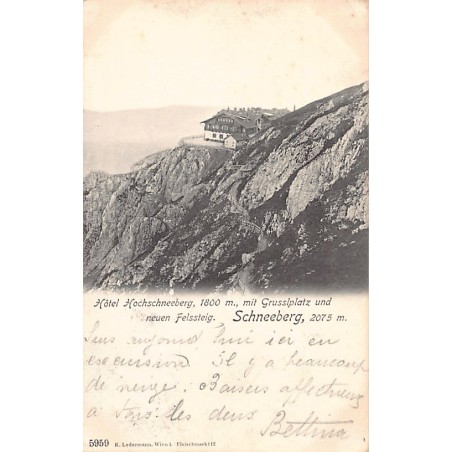 Hôtel Hochschneeberg, 1800 m., mit Grusslplatz und
neuen Felssteig. Schneeberg, 2075 m.
ici en
excursion Il y a beaucoup
de neige. Baisers affectueux
à tous les deux
Bettina
5959 K. Ledermann, Wien I. Fleischmarkt 12